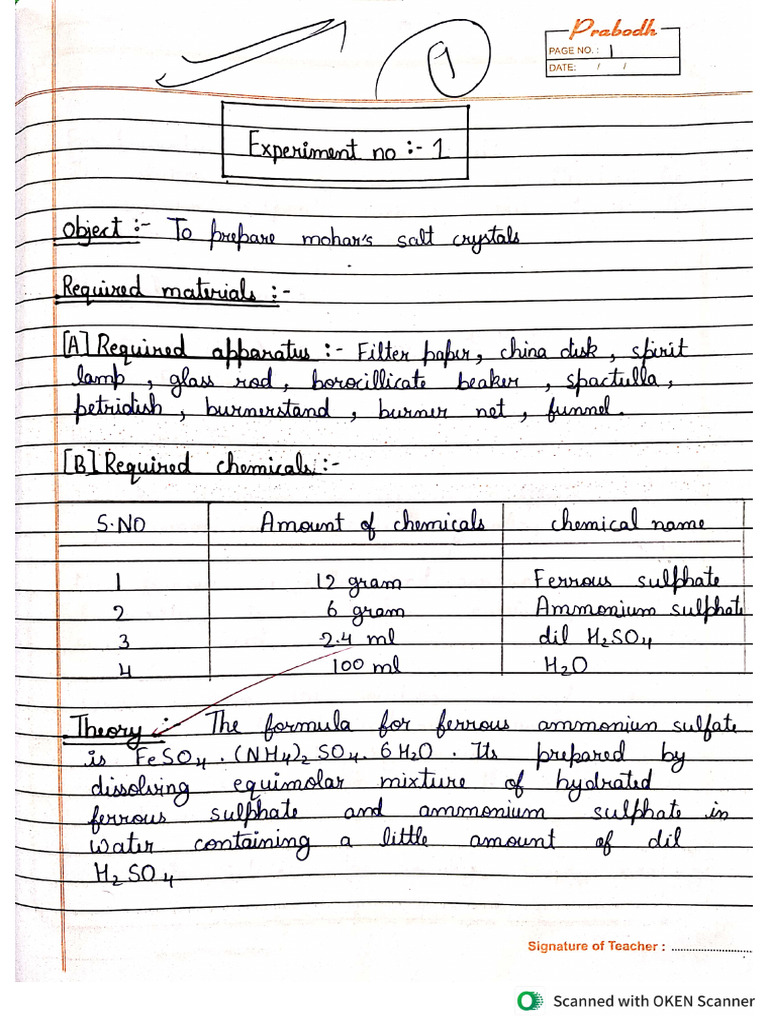 Prabodh
PAGE NO. : 1
DATE: / /
1
Experiment no :- 1
Object :- To prepare mohar's salt crystals
Required materials :-
[A] Required apparatus :- Filter paper, china disk, spirit
lamp, glass rod, borocillicate beaker, spactulla,
petridish, burnerstand, burner net, funnel.
[B] Required chemicals :-
S.NO Amount of chemicals chemical name
1 12 gram Ferrous sulphate
2 6 gram Ammonium sulphate
3 2.4 ml dil H₂SO₄
4 100 ml H₂O
Theory :- The formula for ferrous ammoniun sulfate
is FeSO₄.(NH₄)₂SO₄.6H₂O. Its prepared by
dissolving equimolar mixture of hydrated
ferrous sulphate and ammonium sulphate in
water containing a little amount of dil
H₂SO₄
Signature of Teacher : ....................
Scanned with OKEN Scanner